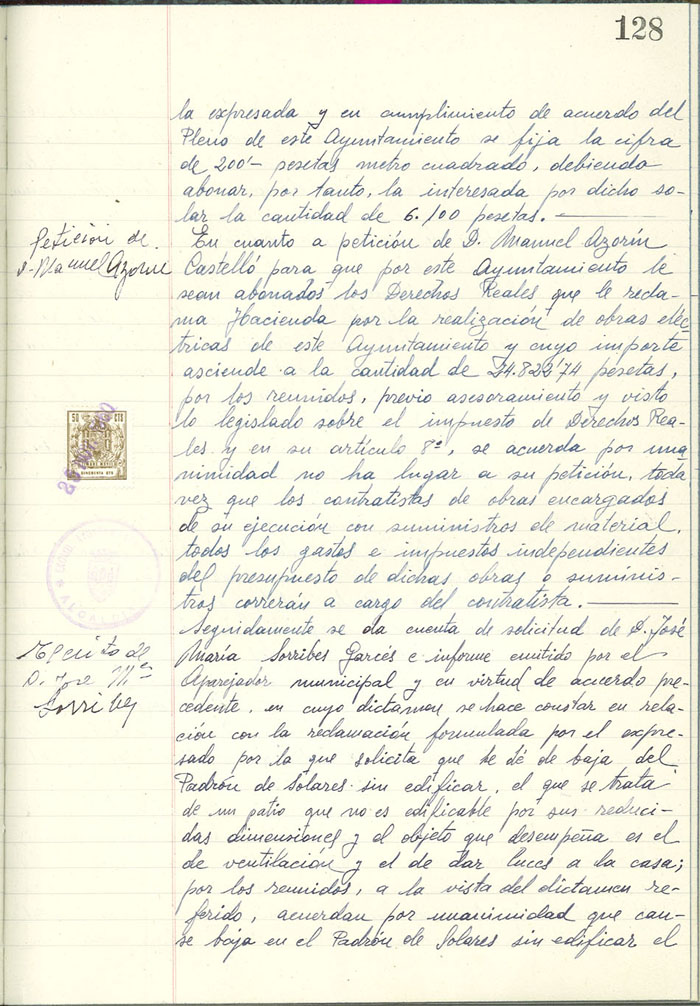 128
la expresada y en cumplimiento de acuerdo del
Pleno de este Ayuntamiento se fija la cifra
de 200'- pesetas metro cuadrado, debiendo
abonar, por tanto, la interesada por dicho so-
lar la cantidad de 6.100 pesetas.
Petición de
D. Manuel Azorin
En cuanto a petición de D. Manuel Azorín
Castelló para que por este Ayuntamiento le
sean abonados los Derechos Reales que le recla-
ma Hacienda por la realización de obras eléc-
tricas de este Ayuntamiento y cuyo importe
asciende a la cantidad de 24.822'74 pesetas,
por los reunidos, previo asesoramiento y visto
lo legislado sobre el impuesto de Derechos Rea-
les y en su artículo 8º, se acuerda por una-
nimidad no ha lugar a su petición, toda
vez que los contratistas de obras encargados
de su ejecución con suministros de material,
todos los gastos e impuestos independientes
del presupuesto de dichas obras o suminis-
tros correrán a cargo del contratista.
50 CTS
CINCUENTA CTS
ALCALDIA
Escrito de
D. Jose Mª
Sorribes
Seguidamente se da cuenta de solicitud de D. José
María Sorribes Garcés e informe emitido por el
Aparejador municipal y en virtud de acuerdo pre-
cedente, en cuyo dictamen se hace constar en rela-
ción con la reclamación formulada por el expre-
sado por la que solicita que se dé de baja del
Padrón de Solares sin edificar, el que se trata
de un patio que no es edificable por sus reduci-
das dimensiones y el objeto que desempeña es el
de ventilación y el de dar luces a la casa;
por los reunidos, a la vista del dictamen re-
ferido, acuerdan por unanimidad que cau-
se baja en el Padrón de Solares sin edificar el